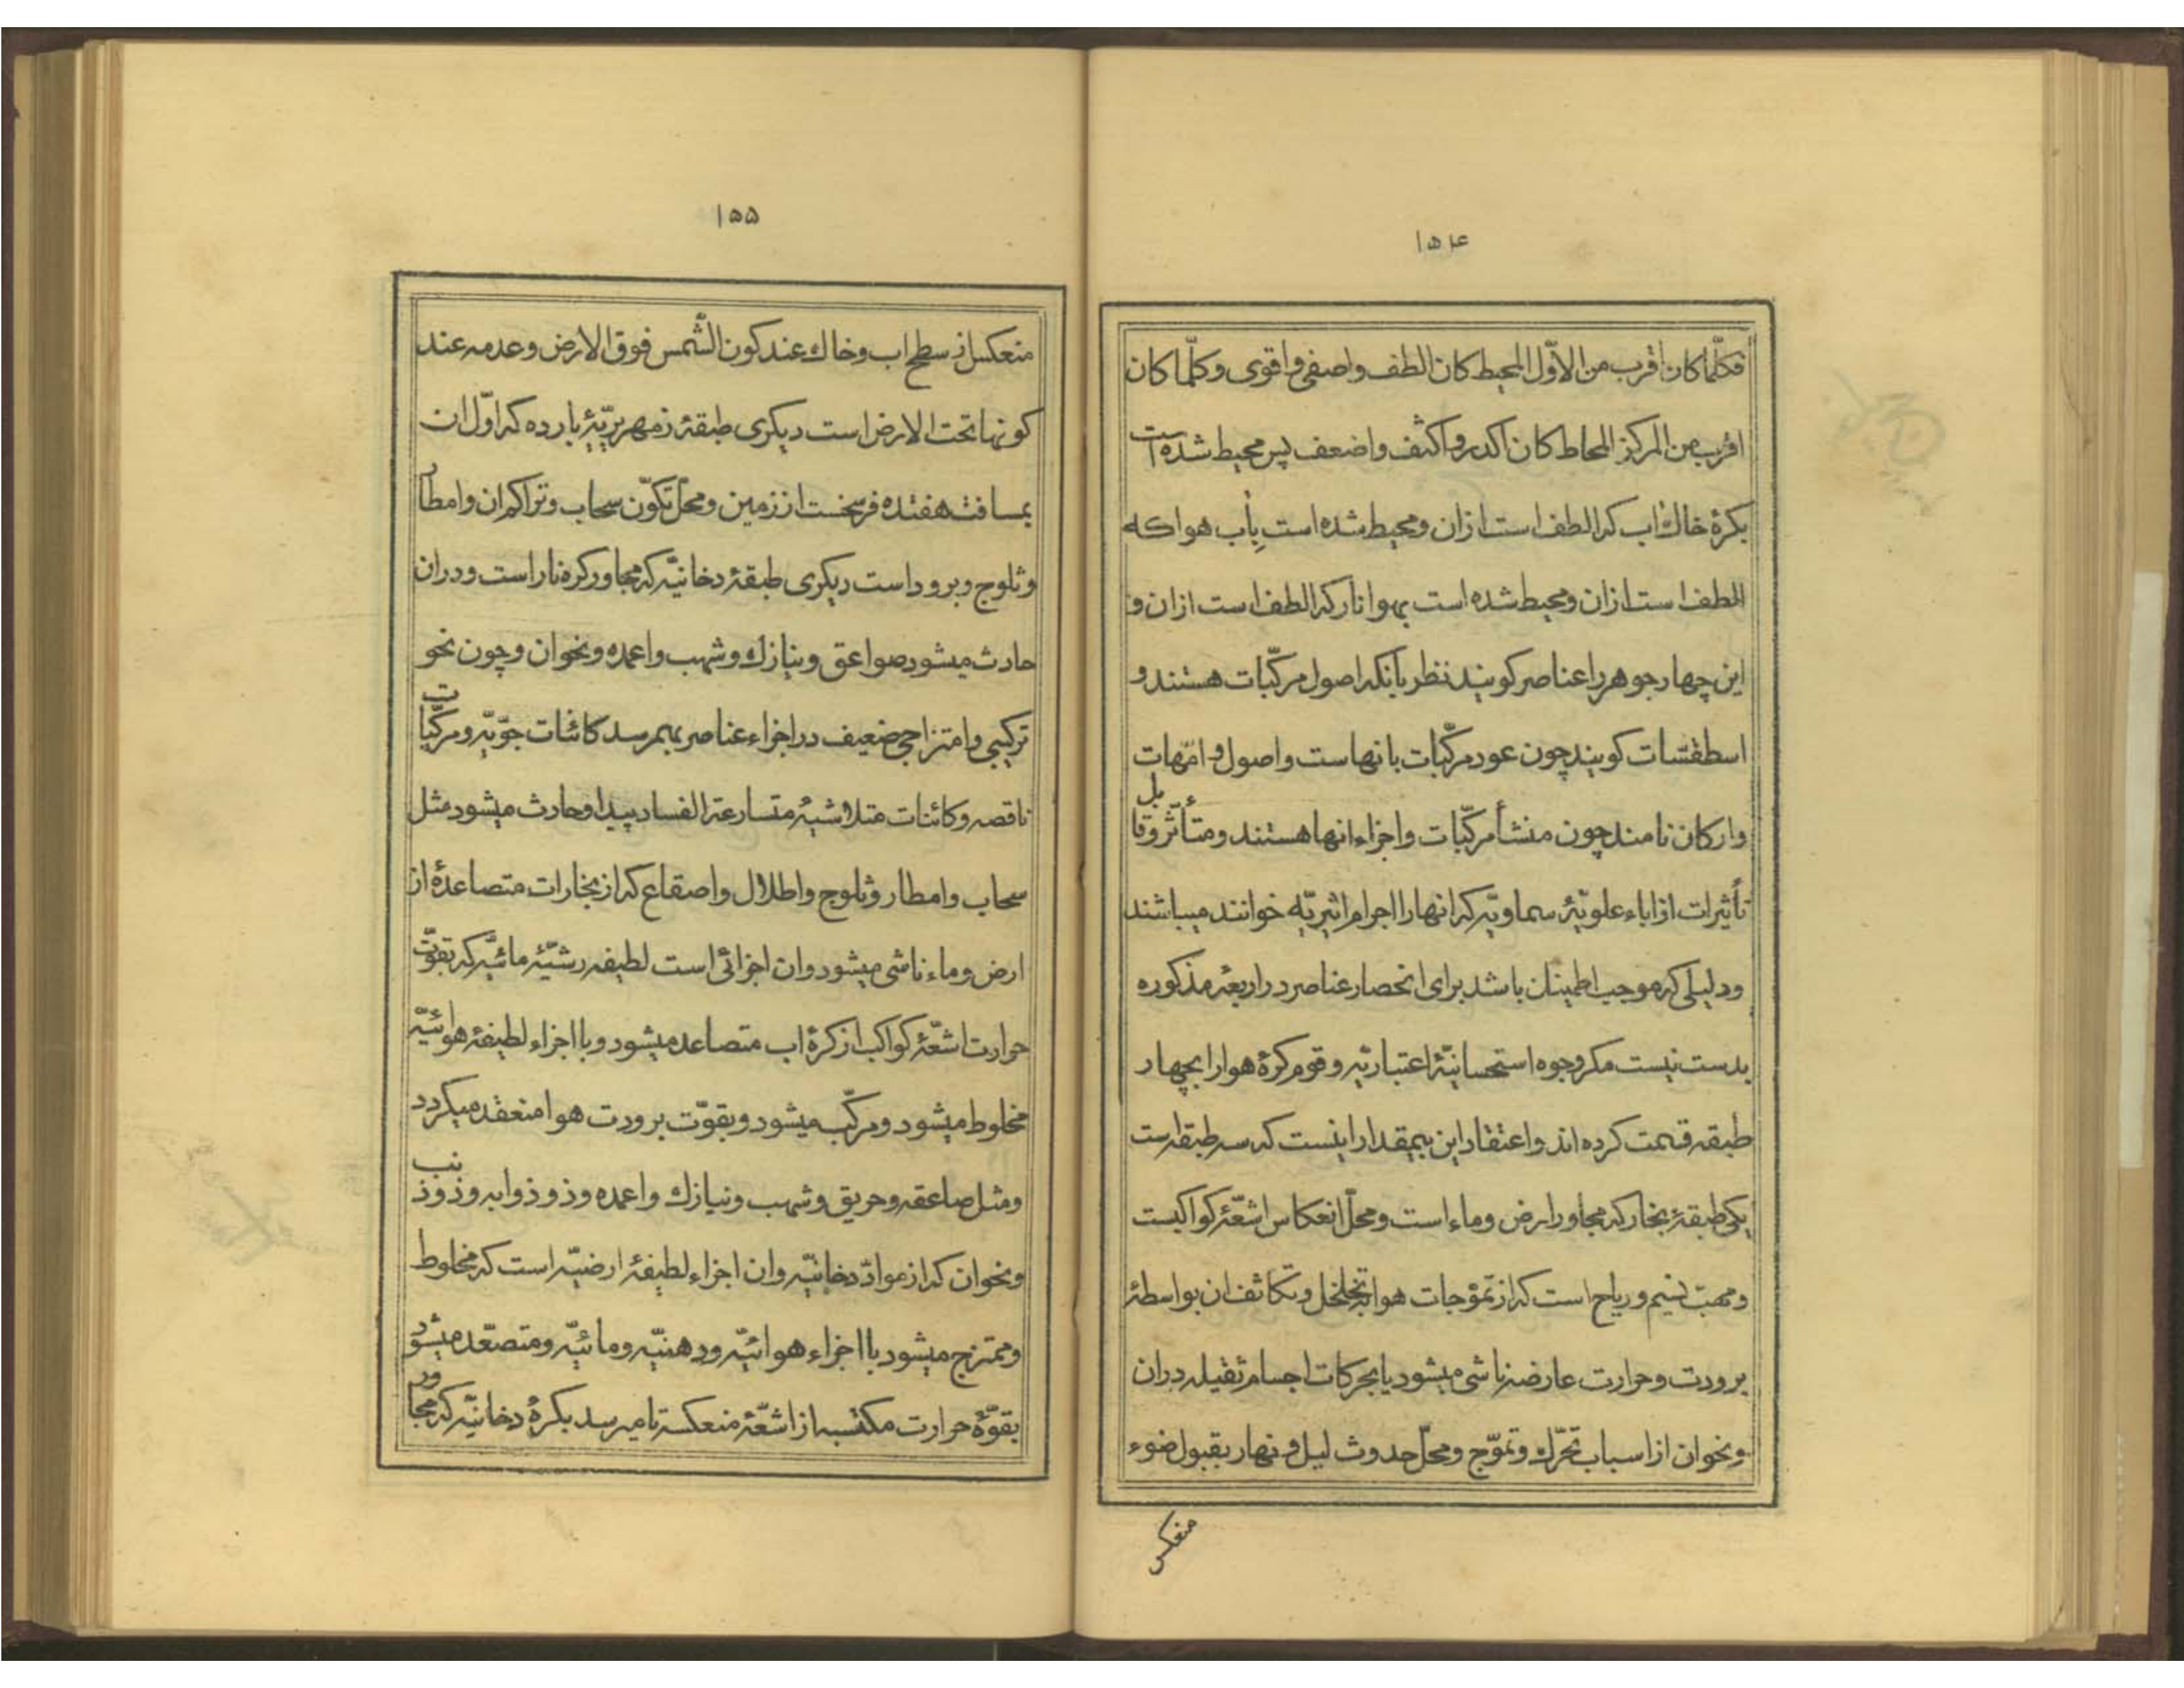 ۱۵۴
فکلّما کان اقرب من الاوّل المحیط کان الطف واصفی واقوی وکلّما کان
اقرب من المرکز المحاط کان اکدر واکثف واضعف پس محیط شده است
بکرهٔ خاك اب که الطف است ازان ومحیط شده است بِاٰب هوا که
الطف است ازان ومحیط شده است بهوا نار که الطف است ازان و
این چهار جوهر را عناصر کویند نظر بانکه اصول مرکّبات هستند و
اسطقسات کویند چون عود مرکّبات بانهاست واصول و امّهات
وارکان نامند چون منشأ مرکّبات واجزاء انها هستند ومتأثّر وقابل
تأثیرات از اباء علویّهٔ سماویّه که انها را اجرام اثیریّه خوانند میباشند
ودلیلی که موجب اطمینان باشد برای انحصار عناصر در اربعهٔ مذکوره
بدست نیست مکر وجوه استحسانیّهٔ اعتباریّه وقوم کرهٔ هوا را بچهار
طبقه قسمت کرده اند واعتقاد این بیمقدار اینست که سه طبقه است
یکی طبقهٔ بخار که مجاور ارض وماء است ومحلّ انعکاس اشعّهٔ کواکبست
ومهبّ نسیم وریاح است که از تموّجات هوا بتخلخل وتکاثف ان بواسطهٔ
برودت وحرارت عارضه ناشی میشود یا بحرکات اجسام ثقیله دران
ونحوان از اسباب تحرّك وتموّج ومحلّ حدوث لیل و نهار بقبول ضوء
منعکس
۱۵۵
منعکس از سطح اب وخاك عند کون الشّمس فوق الارض وعدمه عند
کونها تحت الارض است دیکری طبقهٔ زمهریریّهٔ بارده که اوّل ان
بمسافت هفتده فرسخست از زمین ومحلّ تکوّن سحاب وتراکم ان وامطار
وثلوج وبرود است دیکری طبقهٔ دخانیّه که مجاور کره نار است ودران
حادث میشود صواعق ونیازك وشهب واعمده ونحوان وچون نحو
ترکیبی وامتزاجی ضعیف در اجزاء عناصر بهمرسد کائنات جوّیّه ومرکّبات
ناقصه وکائنات متلاشیهٔ متسارعة الفساد پیدا وحادث میشود مثل
سحاب وامطار وثلوج واطلال واصقاع که از بخارات متصاعدهٔ از
ارض وماء ناشی میشود وان اجزائی است لطیفه رشیّهٔ مائیّه که بقوّت
حرارت اشعّهٔ کواکب از کرهٔ اب متصاعد میشود وبا اجزاء لطیفهٔ هوائیّه
مخلوط میشود ومرکّب میشود وبقوّت برودت هوا منعقد میکردد
ومثل صاعقه وحریق وشهب ونیازك واعمده وذو ذوابه وذو ذنب
ونحوان که از موادّ دخانیّه وان اجزاء لطیفهٔ ارضیّه است که مخلوط
وممتزج میشود با اجزاء هوائیّه ودهنیّه ومائیّه ومتصعّد میشود
بقوّهٔ حرارت مکتسبه از اشعّهٔ منعکسه تا میرسد بکرهٔ دخانیّه که مجاور